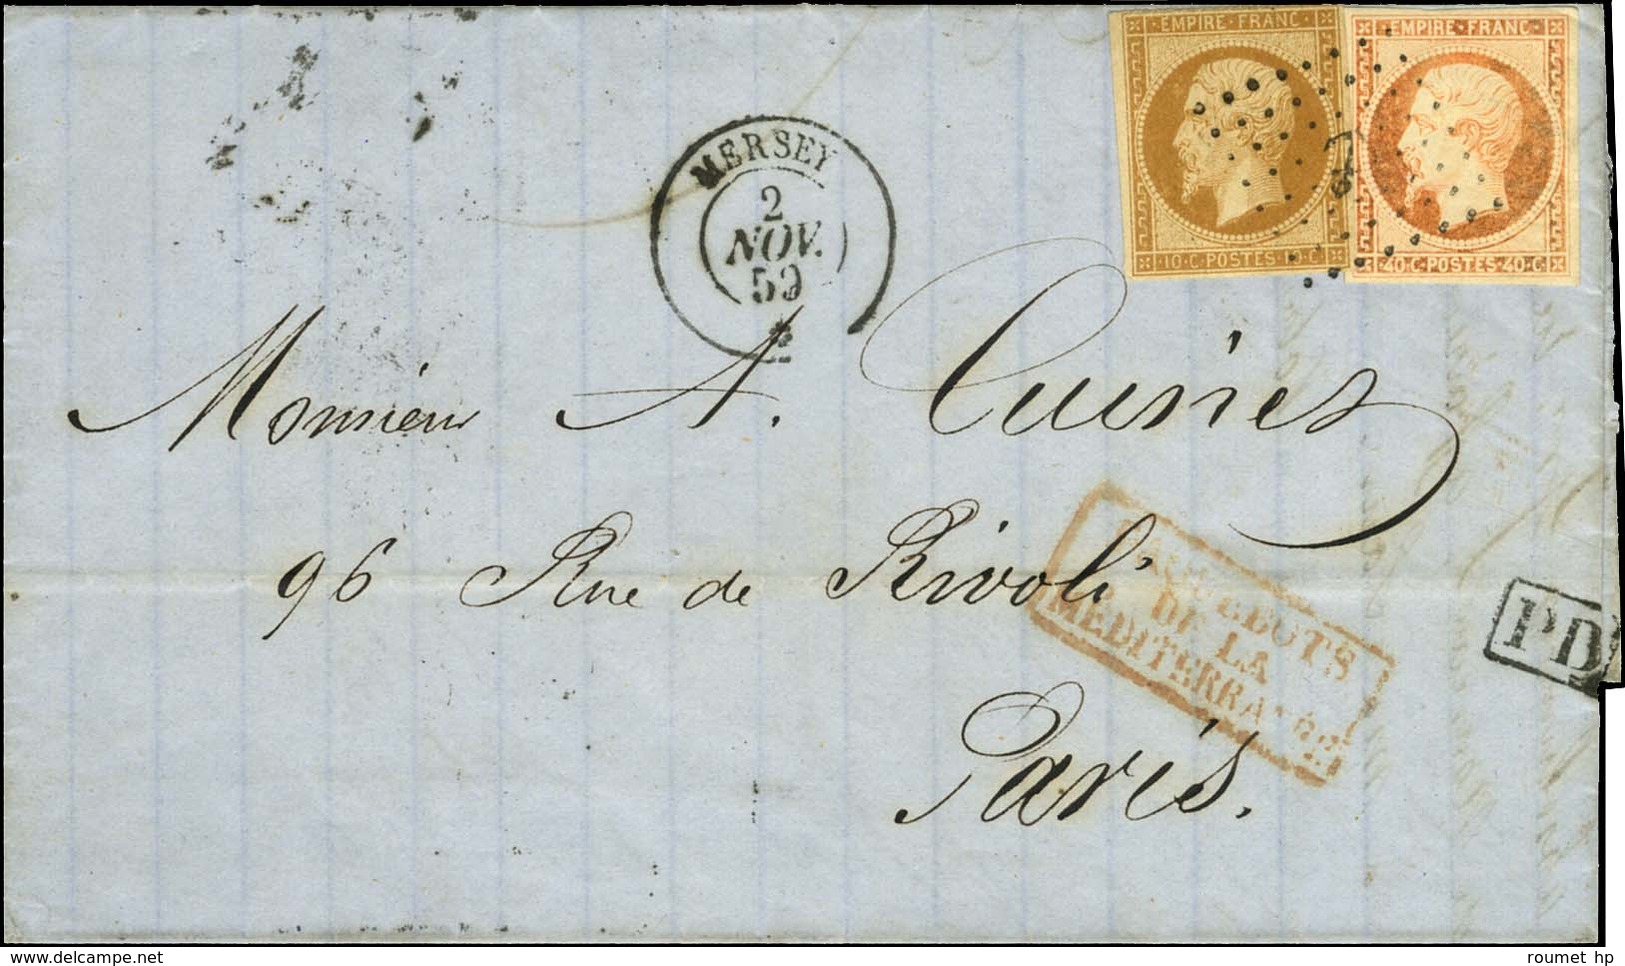 EMPIRE · FRANC ·
10 · C · POSTES · 10 · C
EMPIRE · FRANC
40 · C · POSTES · 40 · C
MERSEY
2
NOV.
59
Monsieur A.
96 Rue de Rivoli
PAQUEBOTS
DE LA
MEDITERRANEE
PD
Paris.
delcampe.net
roumet hp